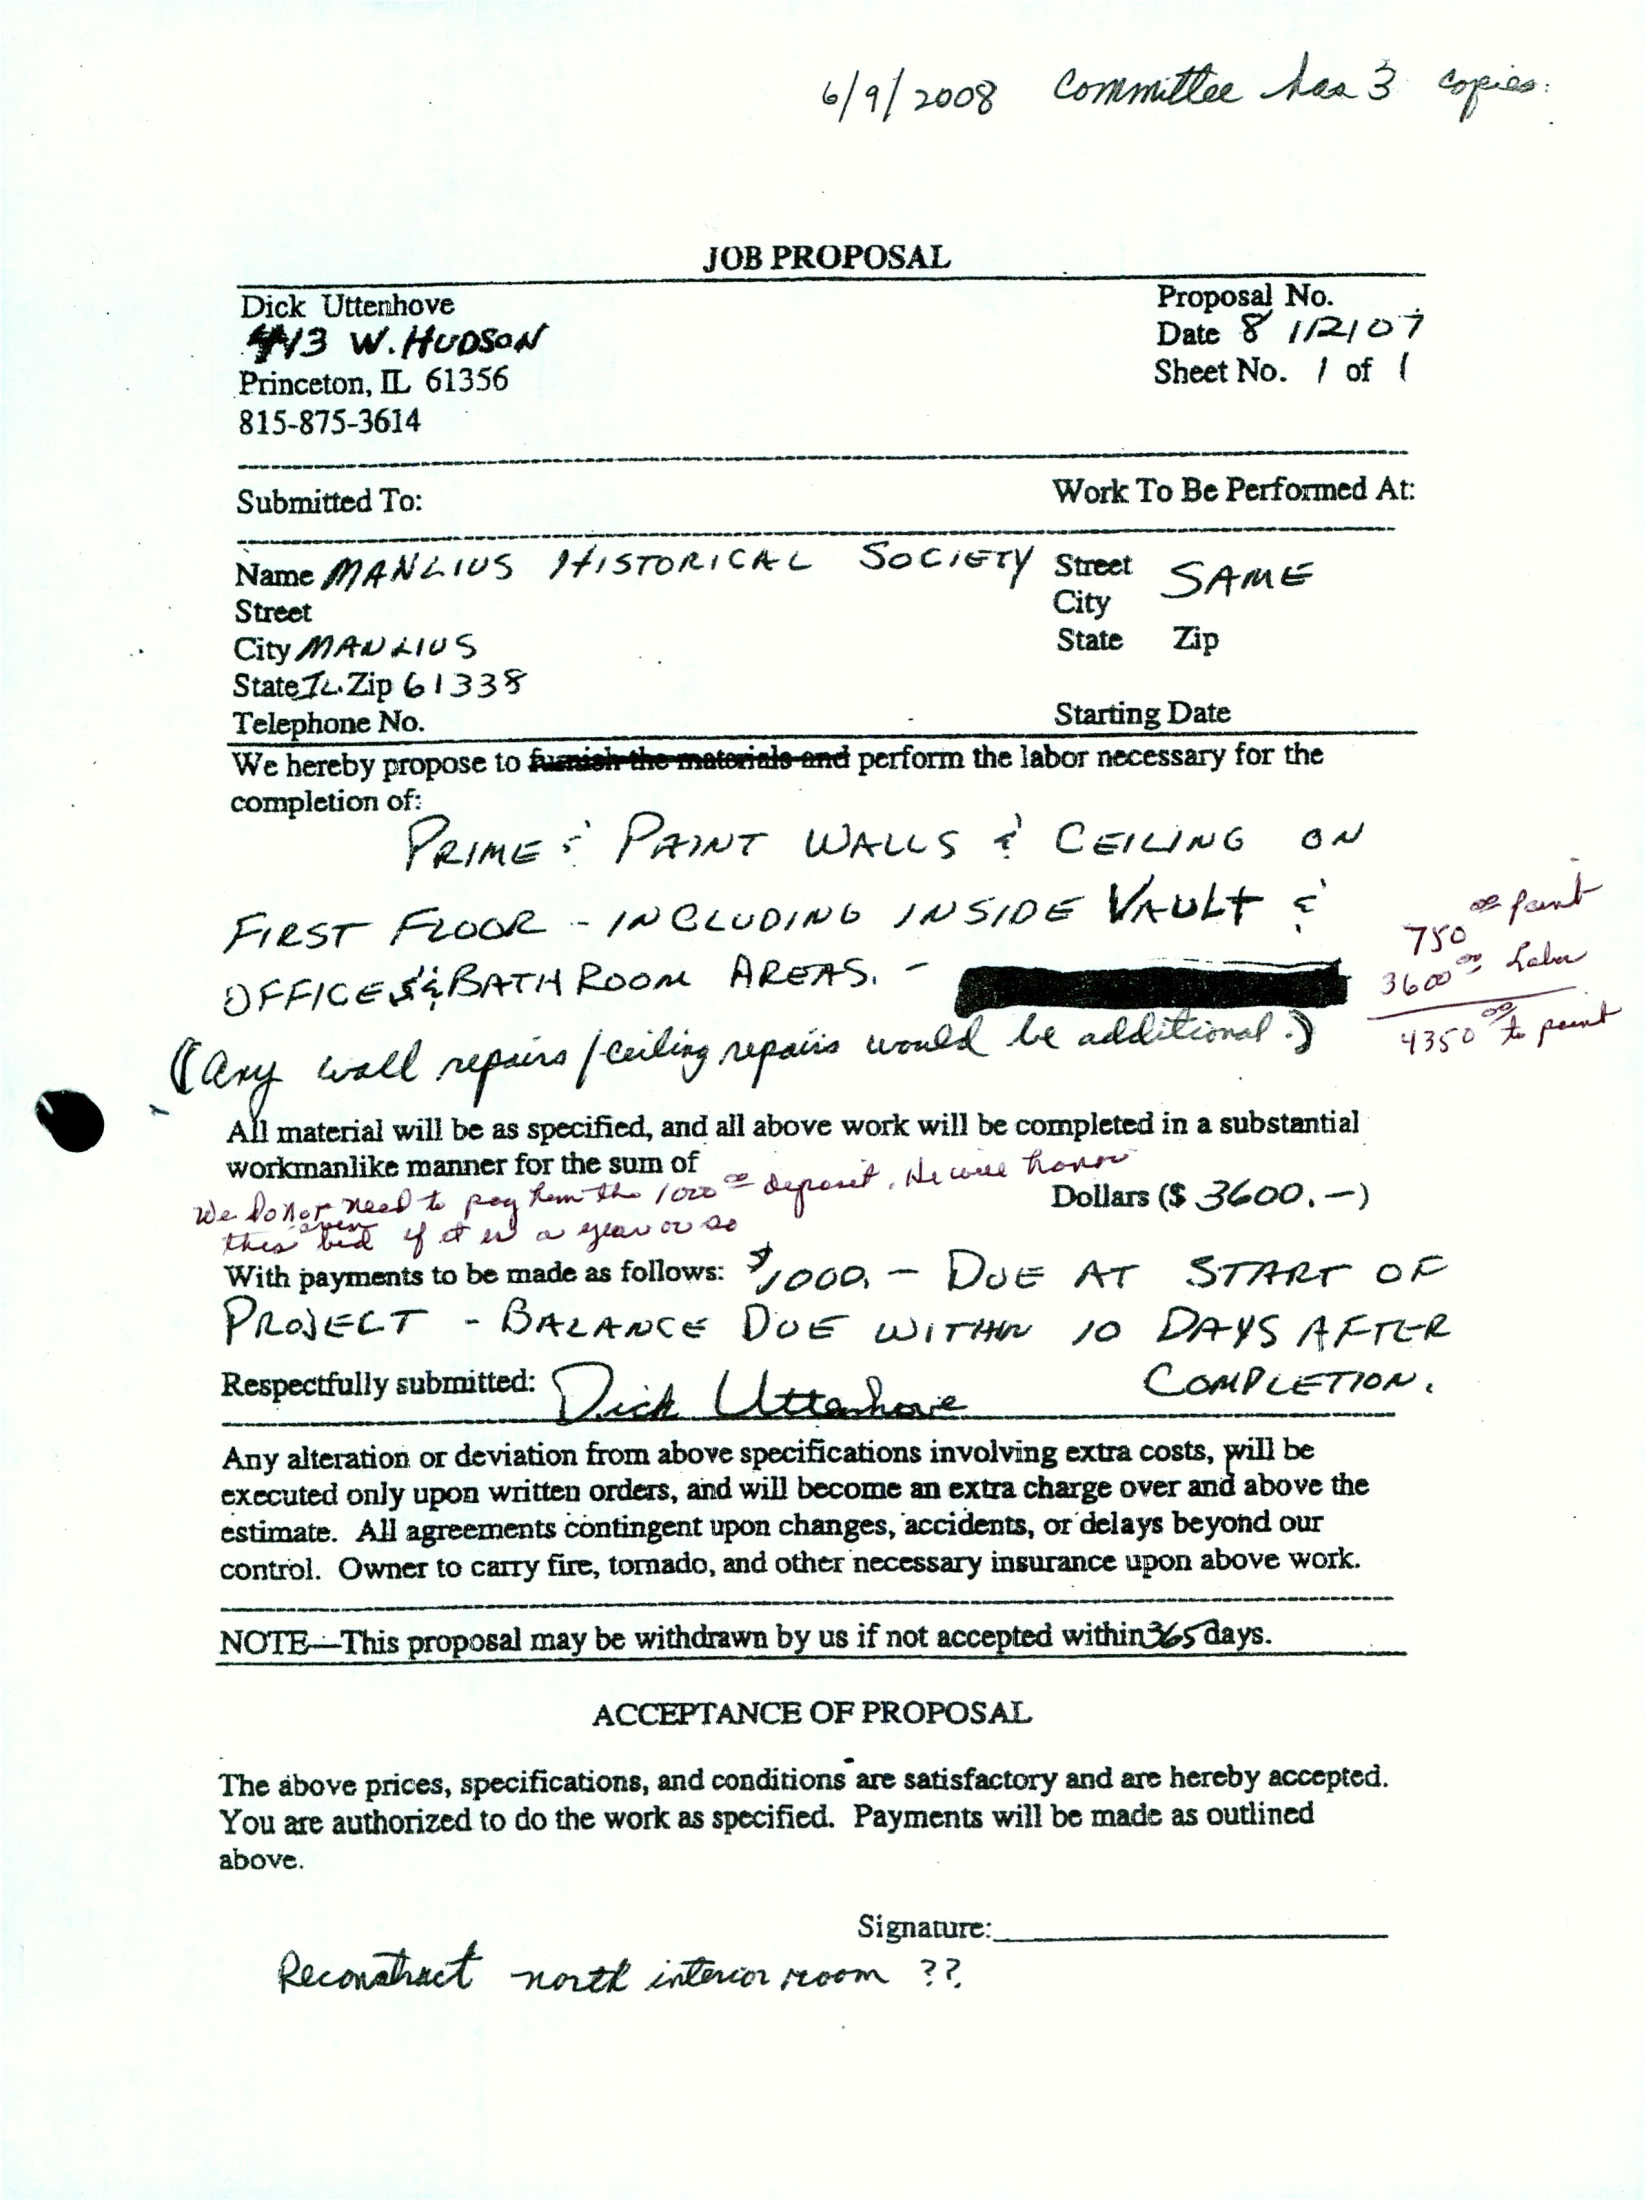 6/9/2008 Committee has 3 copies.
JOB PROPOSAL
Dick Uttenhove
413 W. HUDSON
Princeton, IL 61356
815-875-3614
Proposal No.
Date 8/12/07
Sheet No. 1 of 1
Submitted To:
Work To Be Performed At:
Name MANLIUS HISTORICAL SOCIETY
Street
City MANLIUS
State IL. Zip 61338
Telephone No.
Street SAME
City
State Zip
Starting Date
We hereby propose to furnish the materials and perform the labor necessary for the
completion of:
PRIME & PAINT WALLS & CEILING ON
FIRST FLOOR - INCLUDING INSIDE VAULT &
OFFICES & BATHROOM AREAS. -
(Any wall repairs/ceiling repairs would be additional.)
750 00 paint
3600 00 Labor
4350 00 to paint
All material will be as specified, and all above work will be completed in a substantial
workmanlike manner for the sum of
Dollars ($ 3600.-)
We do not need to pay him the 1000 00 deposit, He will honor
this bid even if it is a year or so
With payments to be made as follows: $1000.- DUE AT START OF
PROJECT - BALANCE DUE WITHIN 10 DAYS AFTER
COMPLETION.
Respectfully submitted: Dick Uttenhove
Any alteration or deviation from above specifications involving extra costs, will be
executed only upon written orders, and will become an extra charge over and above the
estimate. All agreements contingent upon changes, accidents, or delays beyond our
control. Owner to carry fire, tornado, and other necessary insurance upon above work.
NOTE—This proposal may be withdrawn by us if not accepted within 365 days.
ACCEPTANCE OF PROPOSAL
The above prices, specifications, and conditions are satisfactory and are hereby accepted.
You are authorized to do the work as specified. Payments will be made as outlined
above.
Signature:
Reconstruct north interior room ??